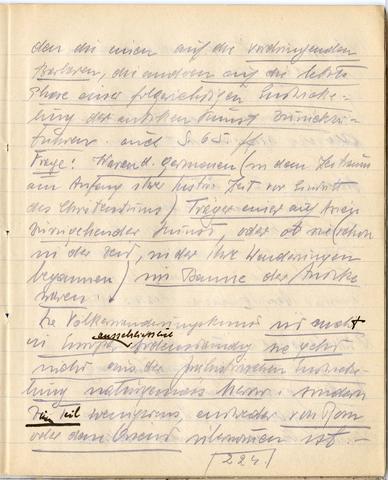 den die einen auf die vordringenden
Barbaren, die andern auf die letzte
Phase einer folgerichtigen Entwicke-
lung der antiken Kunst zurückzu-
führen. auch S. 65 ff
Frage: Waren d. Germanen (in dem Zeitraum
am Anfang ihrer histor. Zeit vor Eintritt
des Christentums) Träger einer auf
zurückgehender Kunst, oder ob sie (schon
in der Zeit, in der ihre Wanderungen
begannen) im Banne der Antike
waren?
Die Völkerwanderungskunst ist nicht
in Europa ausschliesslich bodenständig sie geht
nicht aus der prähistorischen Entwicke-
lung naturgemäss hervor, sondern
ein Teil wenigstens, entweder von Rom
oder dem Orient übernommen ist. -
[224]